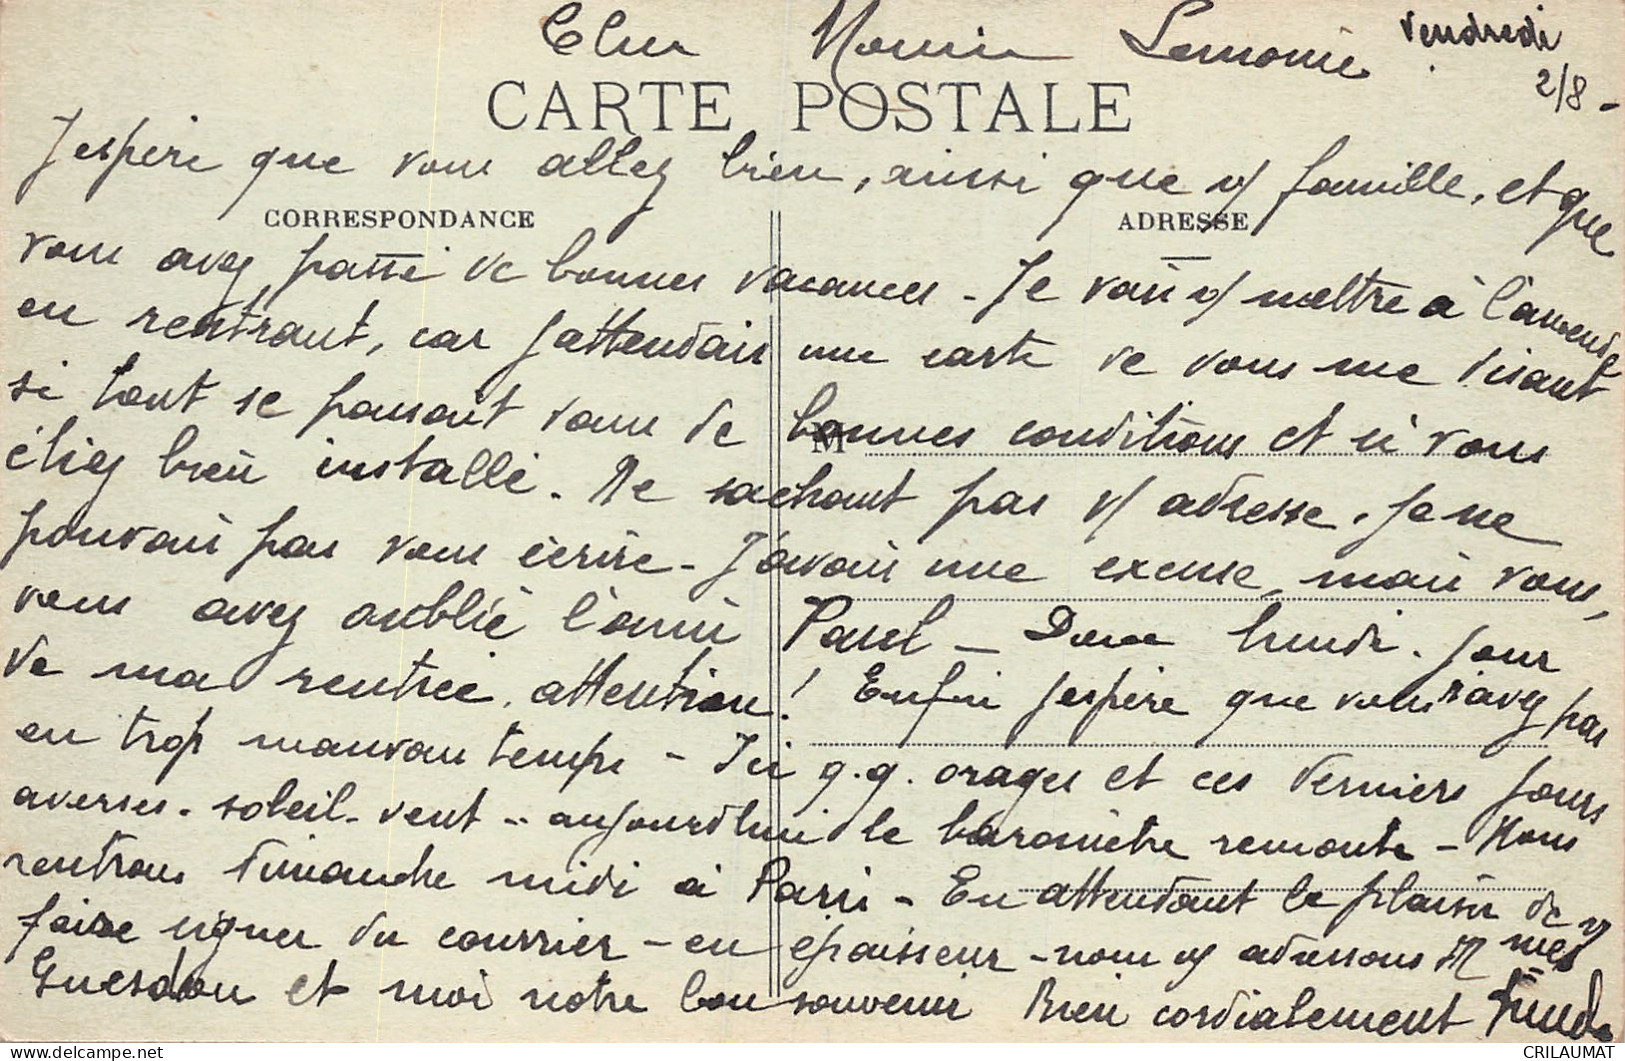 Vendredi
2/8 -
Cher Monsieur Lemoine
CARTE POSTALE
J'espère que vous allez bien, ainsi que v/ famille, et que
CORRESPONDANCE ADRESSE
vous avez passé de bonnes vacances - Je vais v/ mettre à l'amende
en rentrant, car j'attendais une carte de vous me disant
si tout se passait dans de bonnes conditions et si vous
M
étiez bien installé. Ne sachant pas v/ adresse, je ne
pouvais pas vous écrire - J'avais une excuse, mais vous,
vous avez oublié l'ami Paul - Donc lundi, jour
de ma rentrée, attention! Enfin j'espère que vous n'avez pas
eu trop mauvais temps - Ici q.q. orages et ces derniers jours
averses - soleil - vent - aujourd'hui le baromètre remonte - Nous
rentrons dimanche midi à Paris - En attendant le plaisir de v/
faire signer du courrier - en épaisseur - nous v/ adressons Mmes
Guesdon et moi notre bon souvenir Bien cordialement
CRILAUMAT